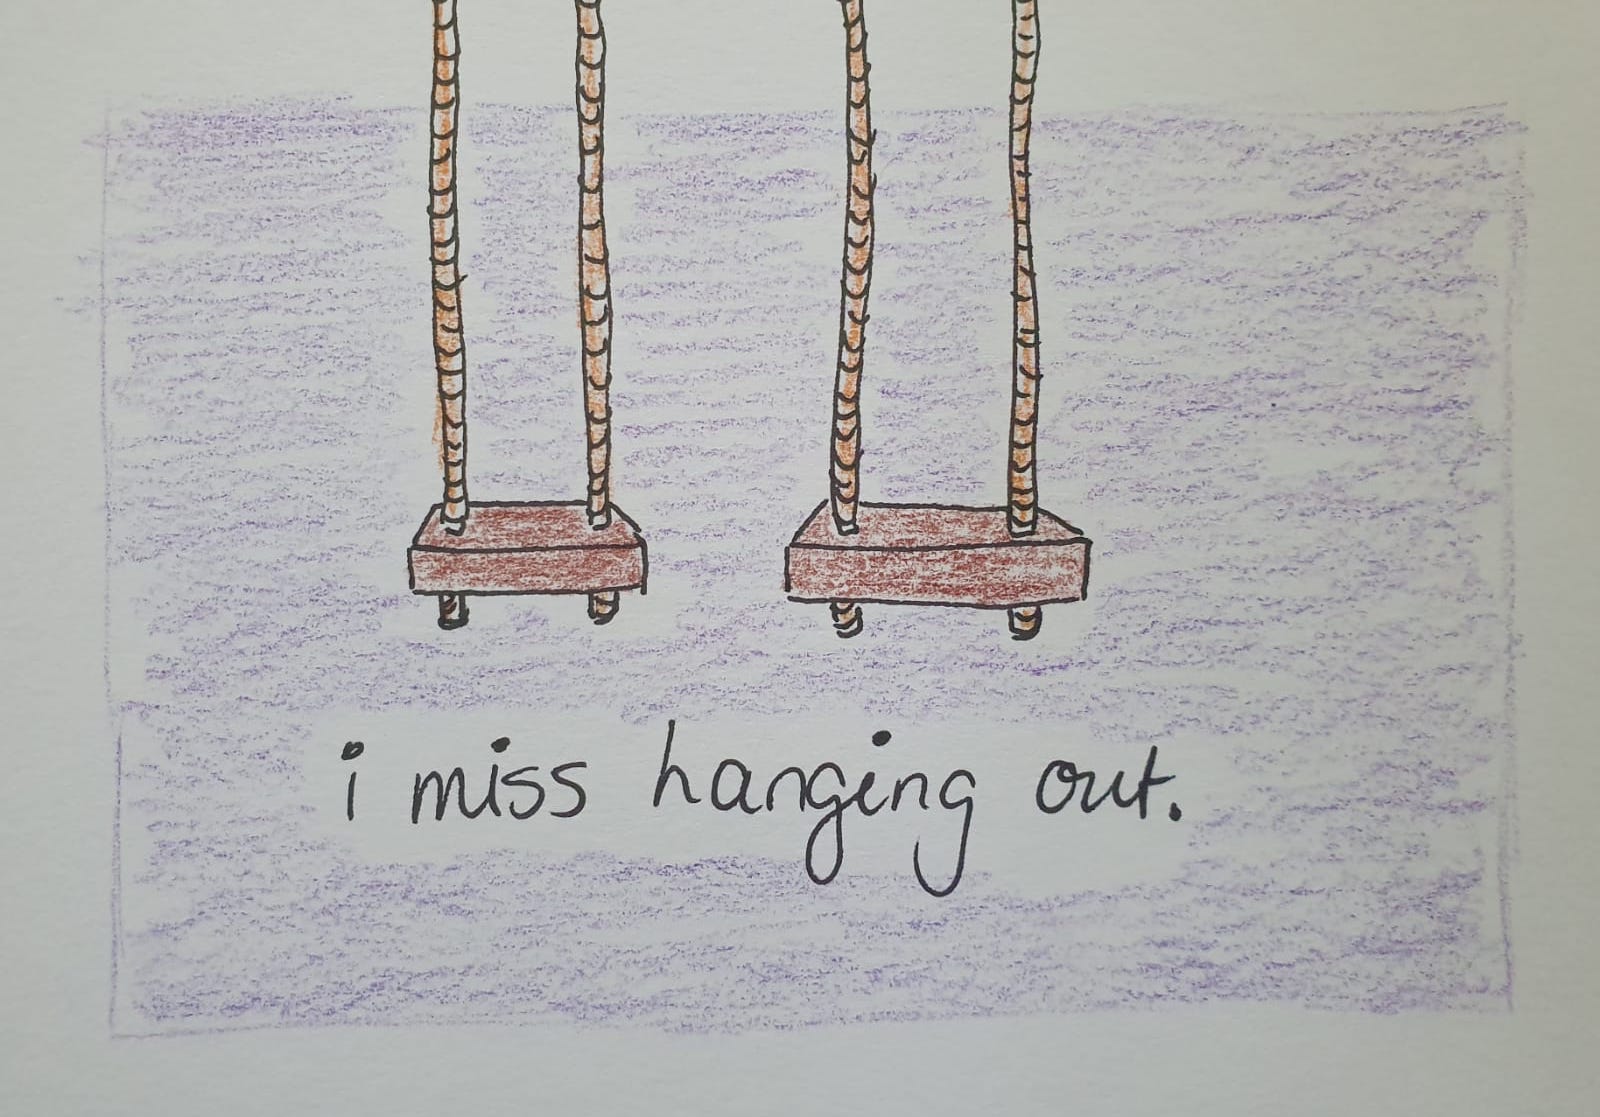 i miss hanging out.